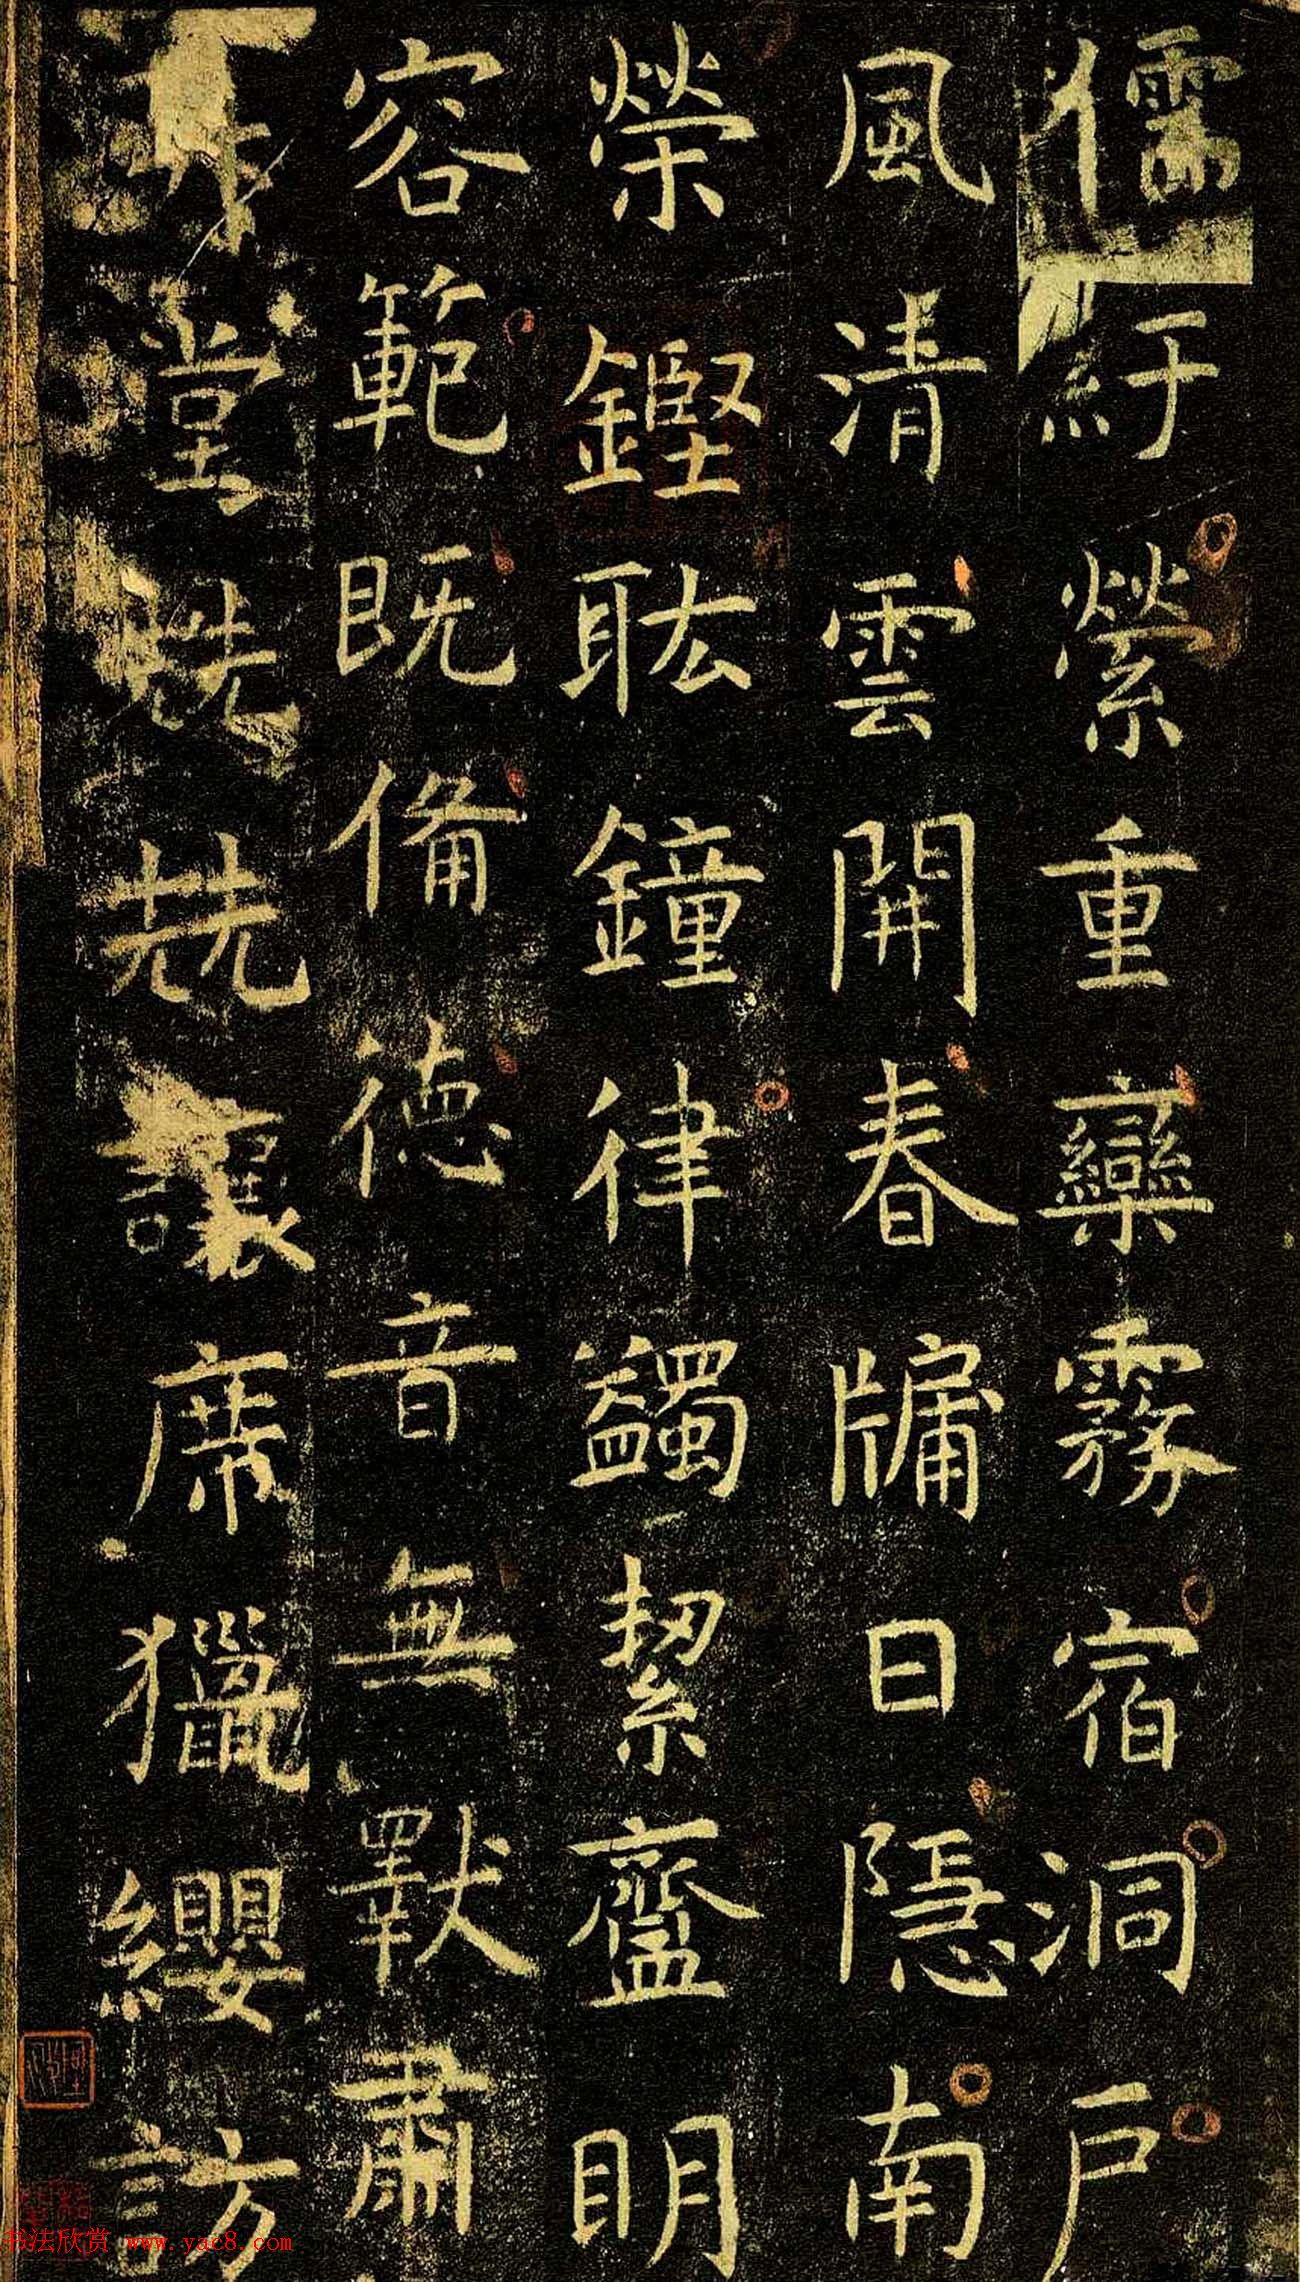 儒紆縈重欒霧宿洞戶
風清雲開春牖日隱南
榮鏗耾鐘律蠲絜齋明
容範既備德音無斁肅
堂兟兟讓席獵纓訪
书法欣赏 www.yac8.com